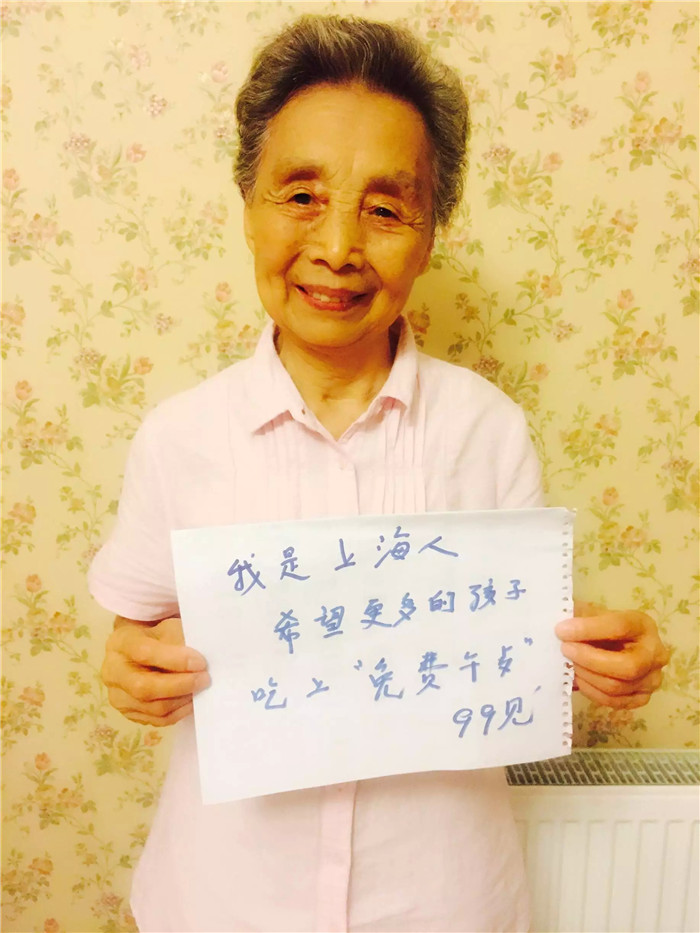 我是上海人
希望更多的孩子
吃上“免费午歺”
99见